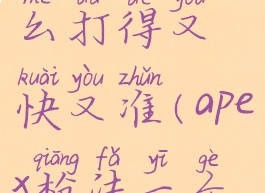 me dǎ de yòu
么打得又
kuài yòu zhǔn
快又准(ape
qiāng fǎ yī gè
x枪法一个